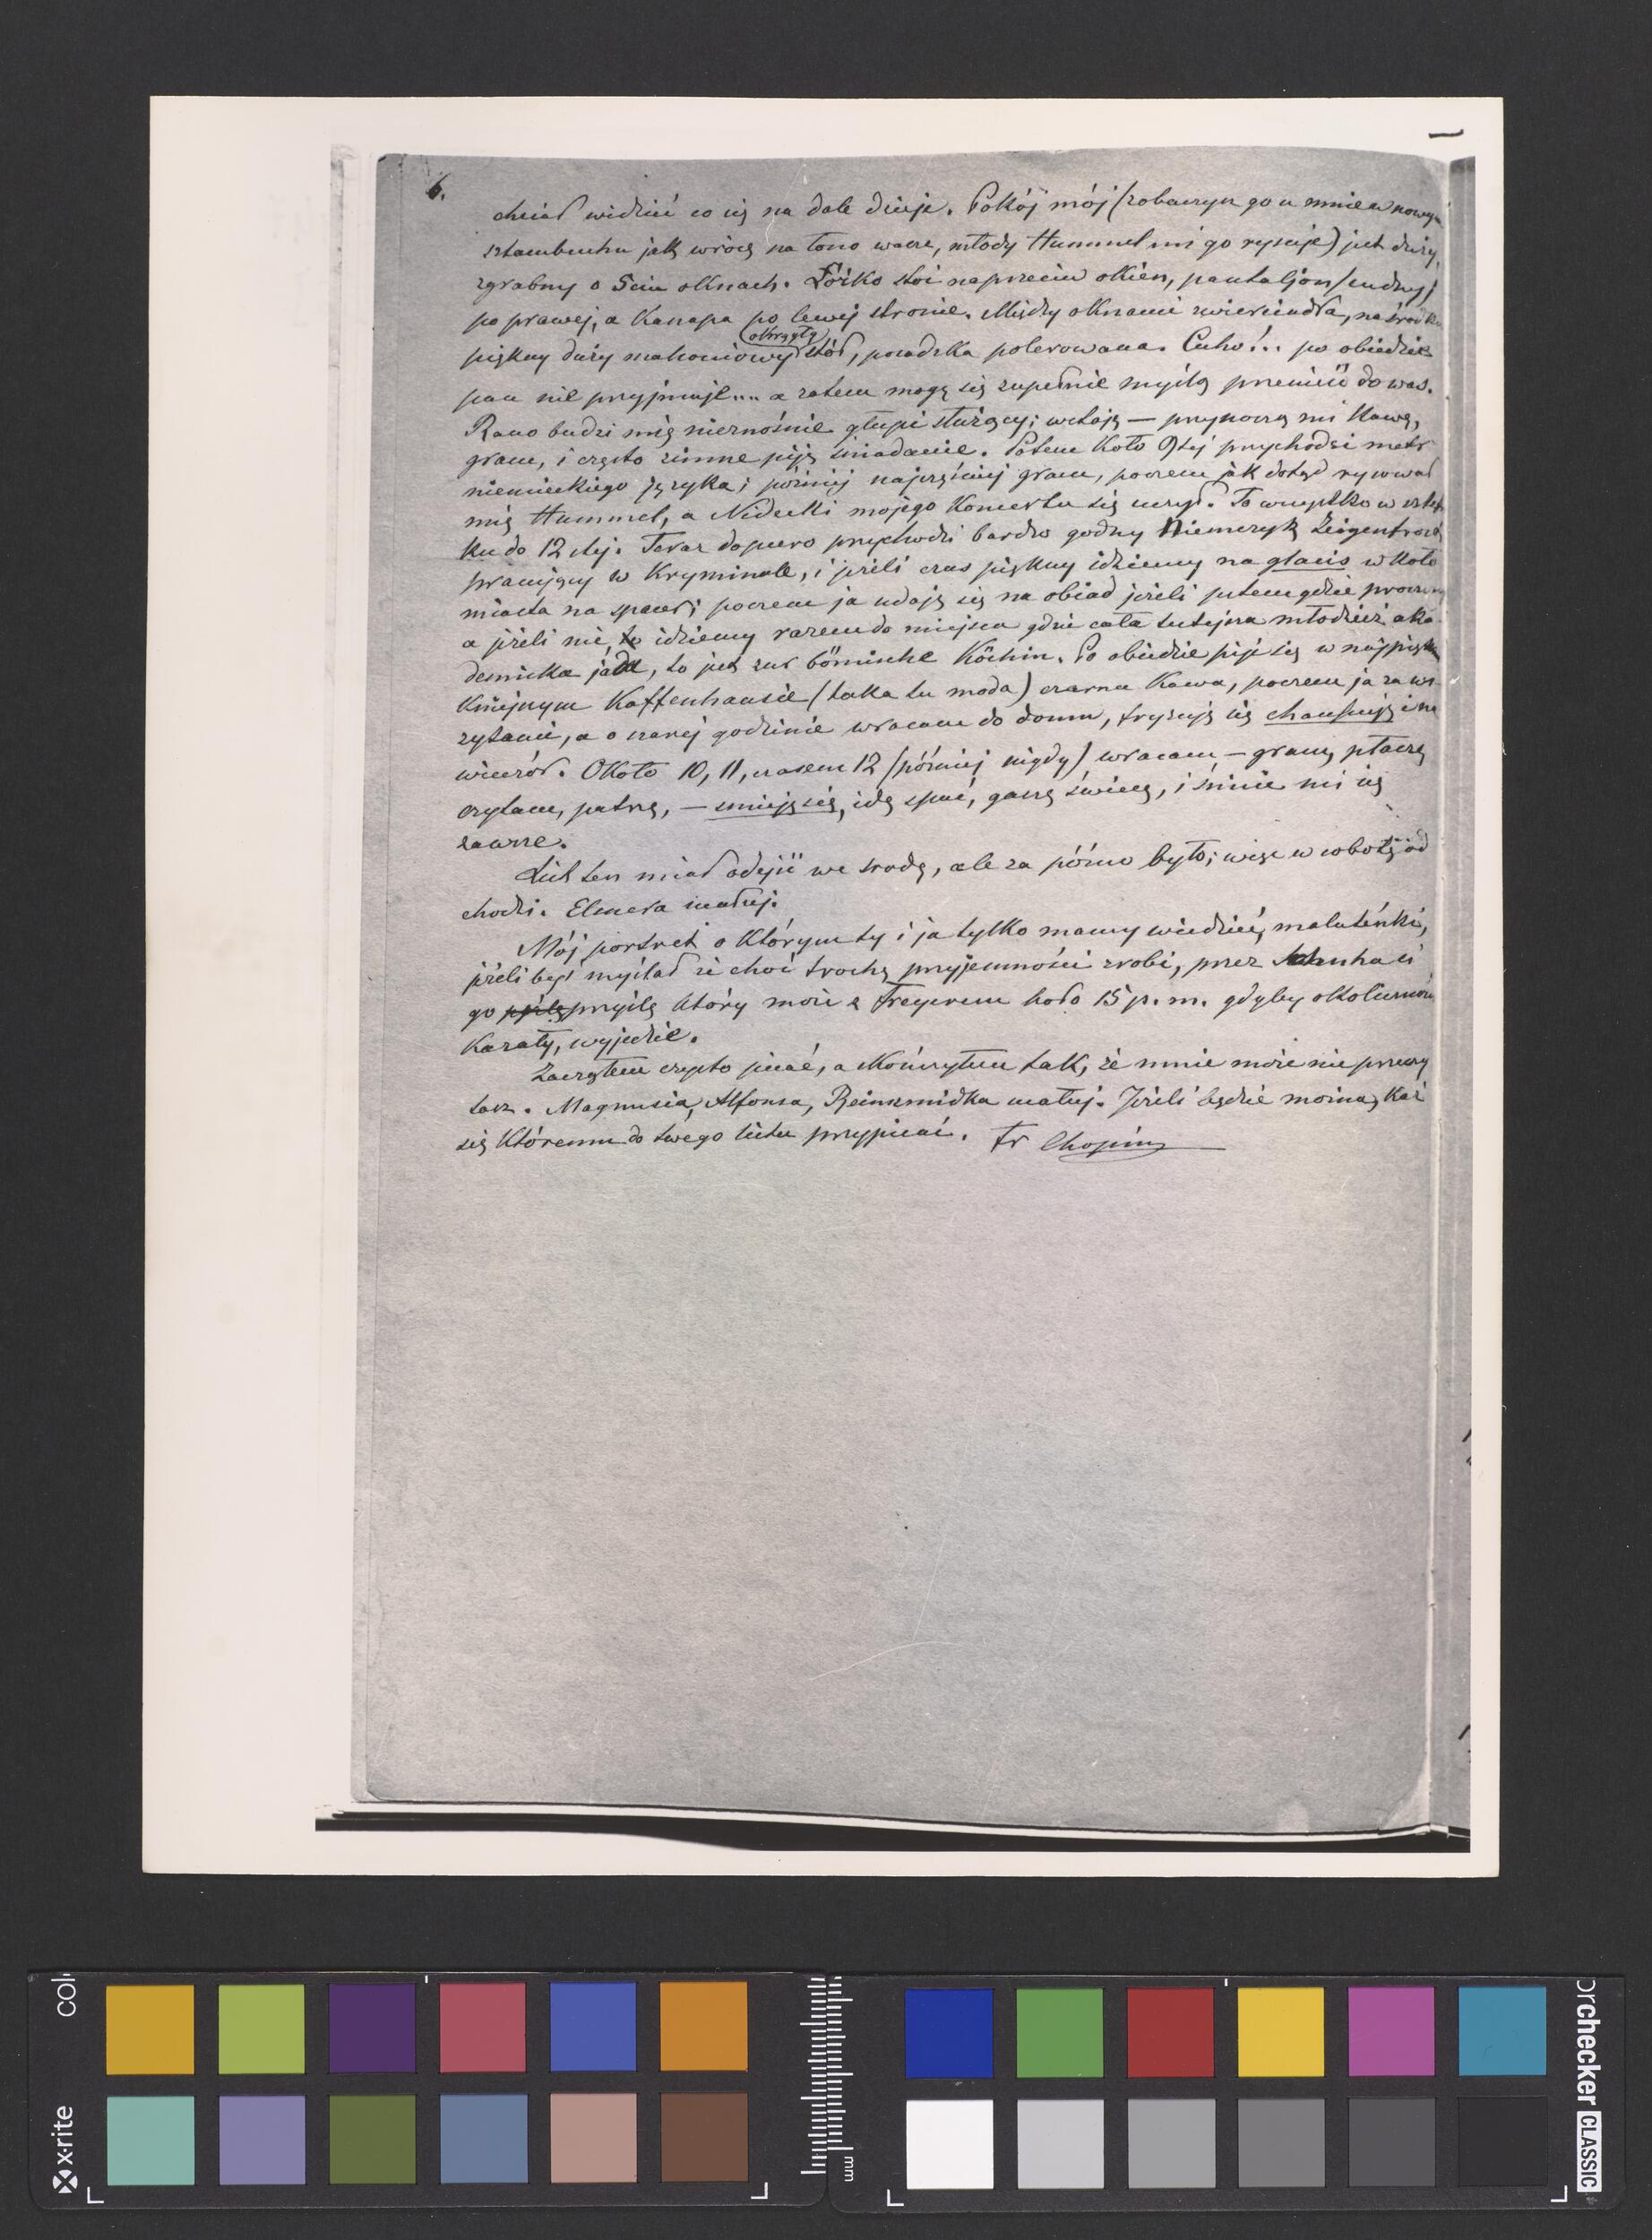 6.
chciał widzieć co się na dole dzieje. Pokój mój (zobaczysz go u mnie w nowym
sztambuchu jak wrócę na łono wasze, młody Hummel mi go rysuje) jest duży,
zgrabny o 3ch oknach. Łóżko stoi naprzeciw okien, pantaljon (cudny)
po prawej, a Kanapa po lewej stronie. Między oknami zwierciadła, na środku
piękny duży mahoniowy okrągły stół, posadzka polerowana. Cicho!.. po obiedzie
pan nie przyjmuje.... a zatem mogę się zupełnie myślą przenieść do was.
Rano budzi mię nieznośnie głupi służący; wstaję — przynoszą mi Kawę,
gram, i często zimne piję śniadanie. Potem Koło 9tej przychodzi metr
niemieckiego języka; później najczęściej gram, poczem jak dotąd rysował
mię Hummel, a Nidecki mojego Koncertu się uczył. To wszystko w szlaf
ku do 12stej. Teraz dopiero przychodzi bardzo godny Niemczyk Leigenfrost
pracujący w Kryminale, i jeżeli czas piękny idziemy na glacis w Koło
miasta na spacer; poczem ja udaję się na obiad jeżeli jestem gdzie proszony
a jeżeli nie, to idziemy razem do miejsca gdzie cała tutejsza młodzież aka-
demicka jada, to jest zur bömische Köchin. Po obiedzie pije się w najpięk
kniejszym Kaffenhausie (taka tu moda) czarna Kawa, poczem ja za wi-
zytami, a o szarej godzinie wracam do domu, fryzuję się chausuję i na
wieczór. Około 10, 11, czasem 12 (później nigdy) wracam, — gram, płaczę
czytam, patrzę, — śmieję się, idę spać, gaszę świecę, i śnicie mi się
zawsze.
List ten miał odejść we środę, ale za późno było; więc w sobotę od
chodzi. Elsnera ucałuj.
Mój portret o którym ty i ja tylko mamy wiedzieć, maluteńki,
jeżeli byś myślał że choć trochę przyjemności zrobi, przez Schucha ci
go przyślę który może z Freyerem koło 15 p. m. gdyby okoliczności
Kazały, wyjedzie.
Zacząłem czysto pisać, a skończyłem tak, że mnie może nie przeczy
tasz. Magnusia, Alfonsa, Reinszmidka ucałuj. Jeżeli będzie można, Każ
się Któremu do twego listu przypisać. Fr Chopin
x-rite
mm
checker CLASSIC